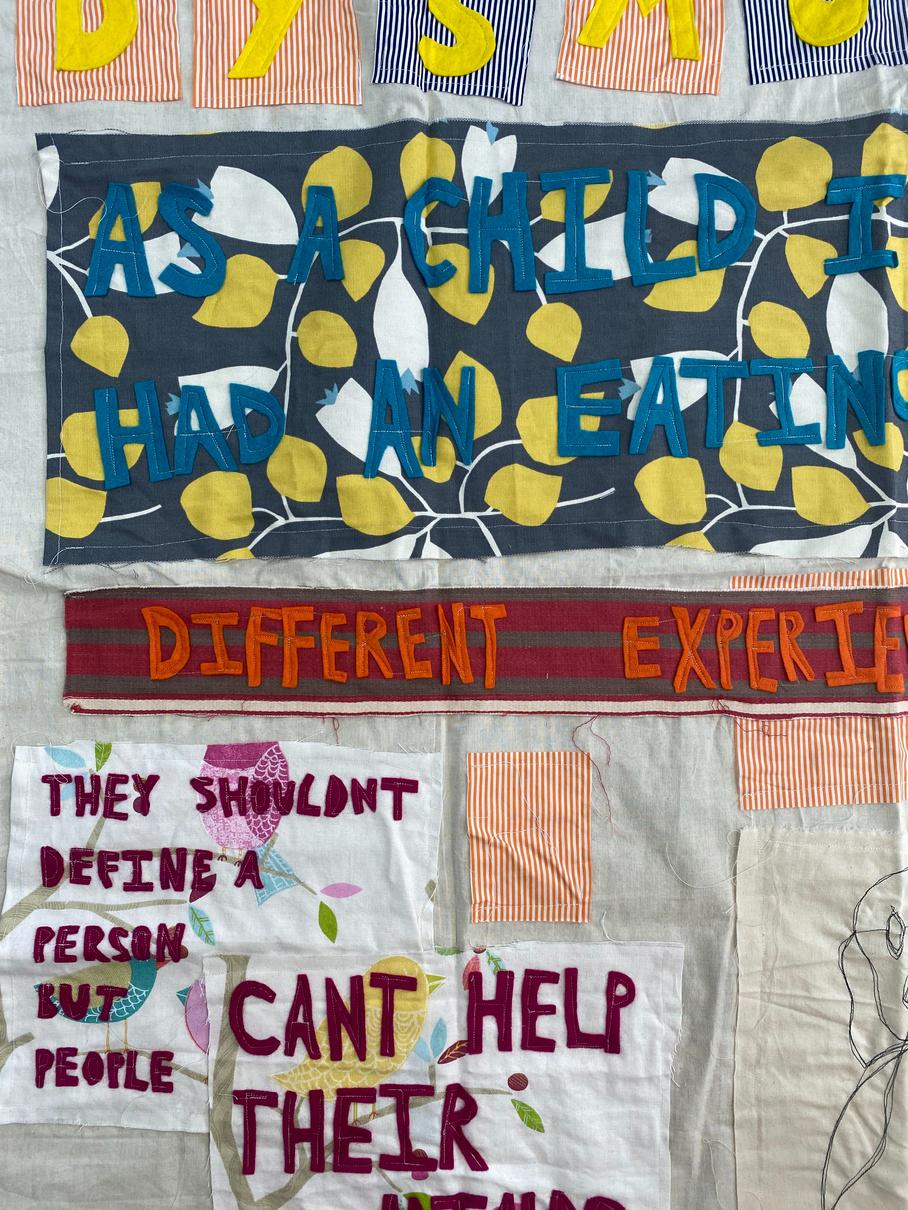 DYSMO
AS A CHILD I
HAD AN EATING
DIFFERENT EXPERIE
THEY SHOULDNT
DEFINE A
PERSON
BUT
PEOPLE
CANT HELP
THEIR